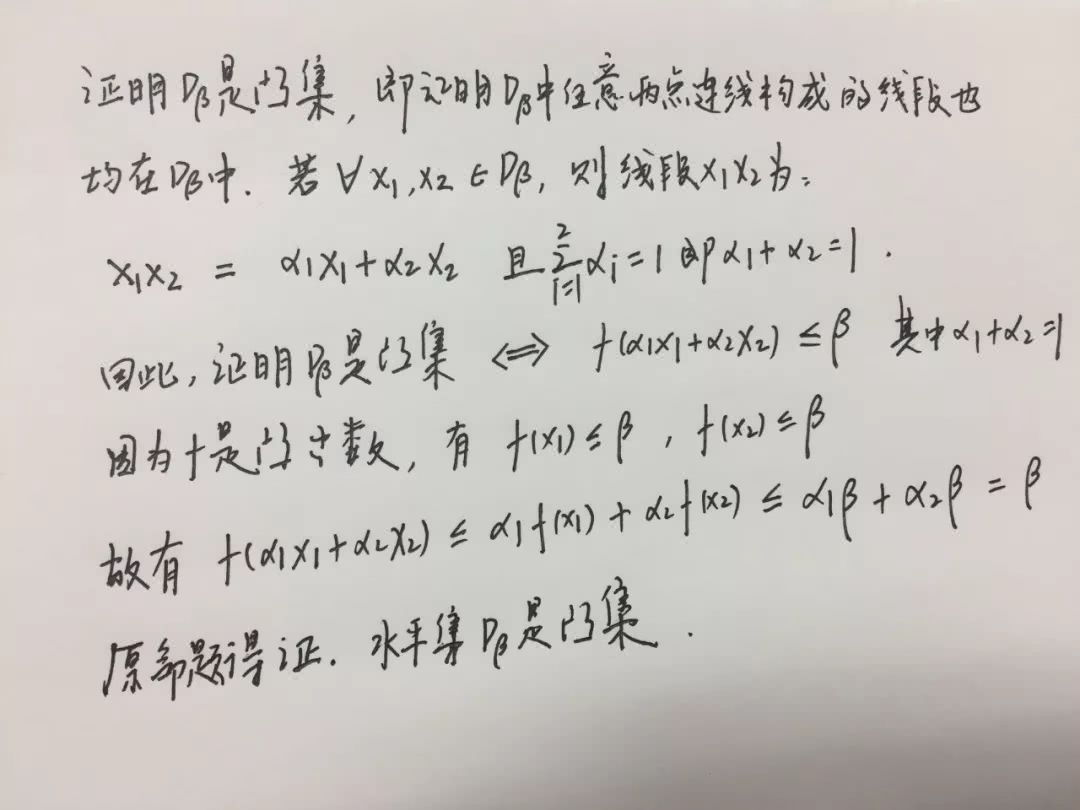 证明Dβ是凸集, 即证明Dβ中任意两点连线构成的线段也
均在Dβ中. 若 ∀x₁,x₂∈Dβ, 则线段x₁x₂为:
x₁x₂ = α₁x₁+α₂x₂ 且∑_{i=1}^{2}αi=1 即α₁+α₂=1.
因此, 证明Dβ是凸集 ⟺ f(α₁x₁+α₂x₂)≤β 其中α₁+α₂=1
因为f是凸函数, 有 f(x₁)≤β, f(x₂)≤β
故有 f(α₁x₁+α₂x₂) ≤ α₁f(x₁) + α₂f(x₂) ≤ α₁β + α₂β = β
原命题得证. 水平集Dβ是凸集.